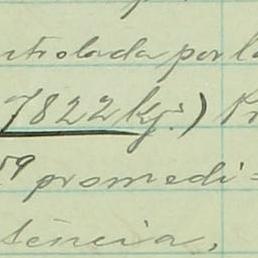 ntrolada por la
7822 kg.) Pr
59 promedi=
tência,